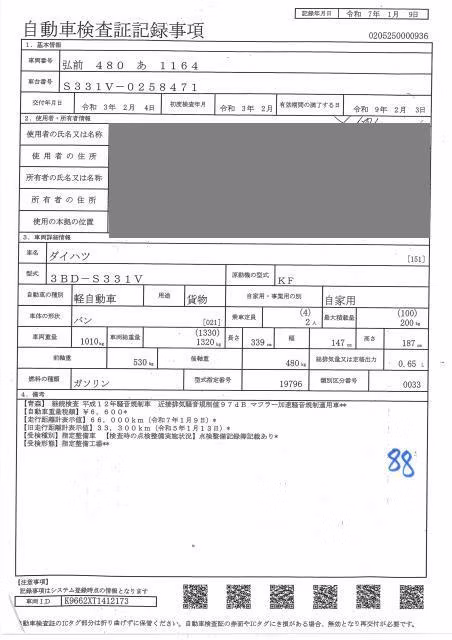 記録年月日 令和 7年 1月 9日
自動車検査証記録事項
0205250000936
1. 基本情報
車両番号 弘前 480 あ 1164
車台番号 S331V-0258471
交付年月日 令和 3年 2月 4日 初度検査年月 令和 3年 2月 有効期間の満了する日 令和 9年 2月 3日
2. 使用者・所有者情報
使用者の氏名又は名称
使用者の住所
所有者の氏名又は名称
所有者の住所
使用の本拠の位置
3. 車両詳細情報
車名 ダイハツ [151]
型式 3BD-S331V 原動機の型式 KF
自動車の種別 軽自動車 用途 貨物 自家用・事業用の別 自家用
車体の形状 バン [021] 乗車定員 (4) 2人 最大積載量 (100) 200kg
車両重量 1010kg 車両総重量 (1330) 1320kg 長さ 339cm 幅 147cm 高さ 187cm
前軸重 530kg 後軸重 480kg 総排気量又は定格出力 0.65 L
燃料の種類 ガソリン 型式指定番号 19796 類別区分番号 0033
4. 備考
【青森】 継続検査 平成12年騒音規制車 近接排気騒音規制値97dB マフラー加速騒音規制適用車**
【自動車重量税額】¥6,600*
【走行距離計表示値】66,000km(令和7年1月9日)*
【旧走行距離計表示値】33,300km(令和5年1月13日)*
【受検種別】指定整備車 【検査時の点検整備実施状況】点検整備記録簿記載あり*
【受検形態】指定整備工場**
88
【注意事項】
記録事項はシステム登録時点の情報となります
車両ID K9662XT1412173
自動車検査証のICタグ部分は折り曲げずに保管ください。自動車検査証の券面やICタグにき損がある場合、無効となり再交付が必要です。